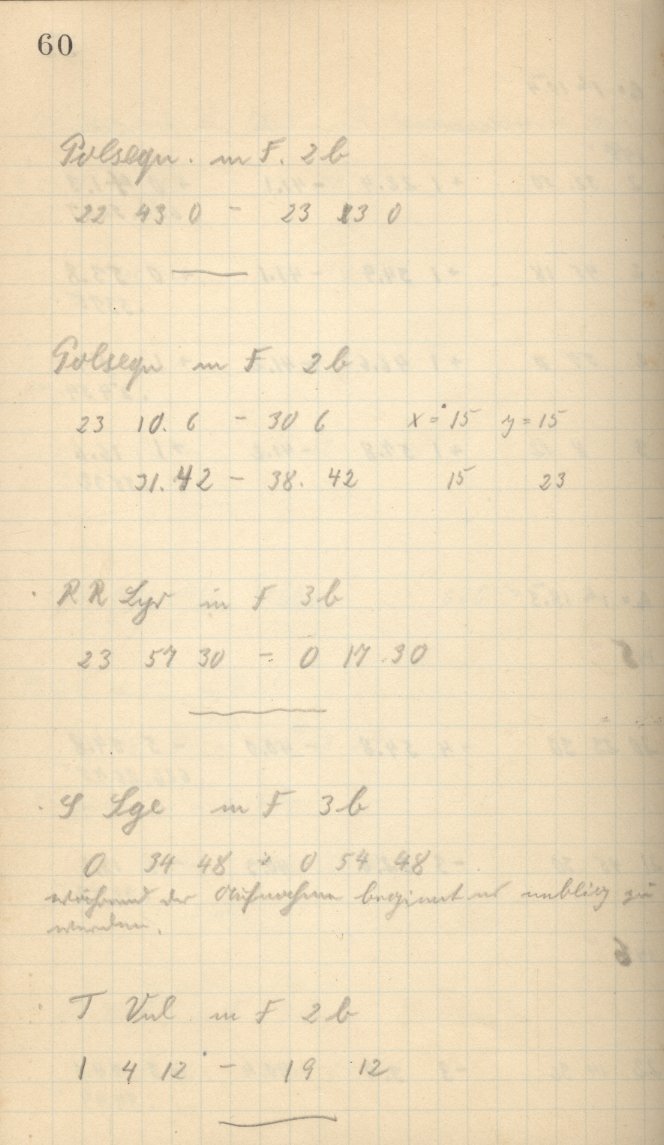 60
Polsequ. in F. 2b
22 43 0 - 23 13 0
Polsequ in F 2b
23 10. 6 - 30 6 x = 15 y = 15
31. 42 - 38. 42 15 23
RR Lyr in F 3b
23 57 30 - 0 17 30
S Sge in F 3b
0 34 48 - 0 54 48
während der Aufnahme beginnt es neblig zu
werden.
T Vul in F 2b
1 4 12 - 19 12